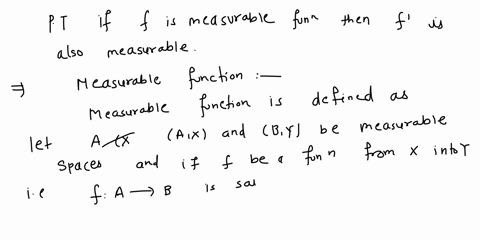 P.T if f is measurable funⁿ then f' is
also measurable.
⇒ Measurable function :—
Measurable function is defined as
let (A,X) and (B,Y) be measurable
spaces and if f be a funⁿ from X into Y
i.e f: A → B is sas